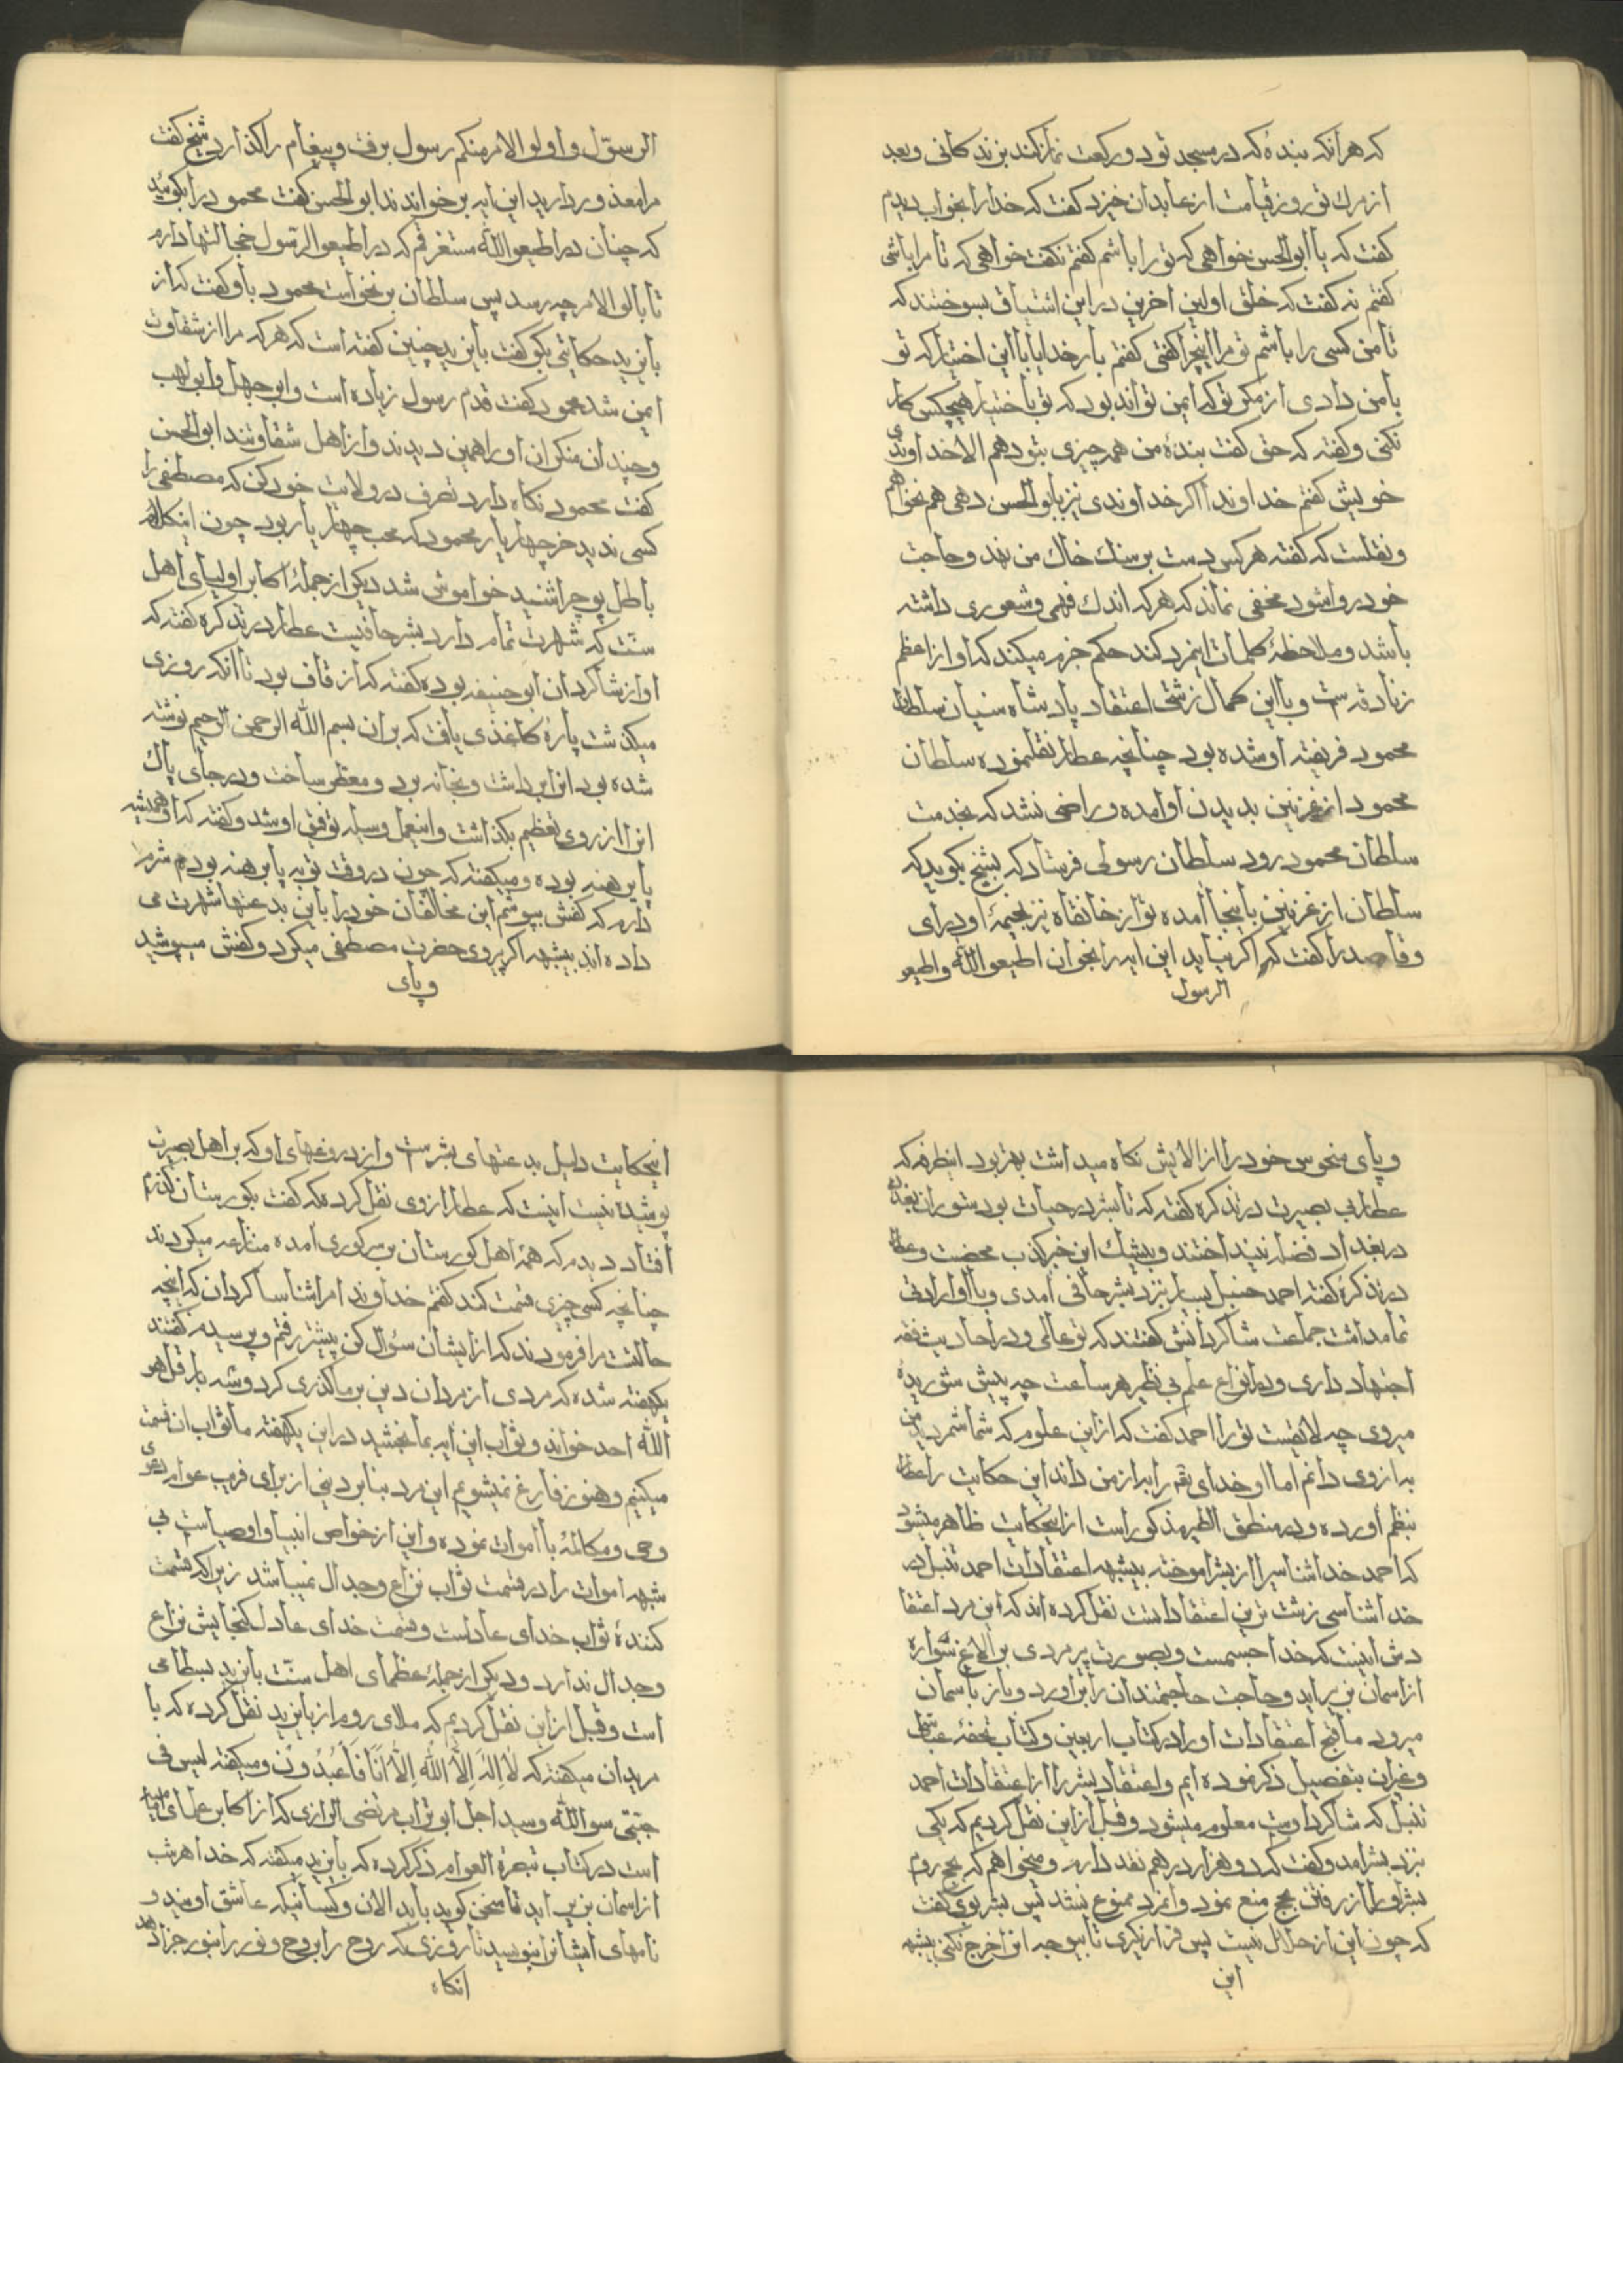 که هرانکه بندهٔ که درمسجد تو دو رکعت نماز کند بزندکانی و بعد
از مرك تو روز قیامت از عابدان خیزد کفت که خدا را بخواب دیدم
کفت که یا ابوالحسن خواهی که تو را باشم کفتم نه کفت خواهی که تا مرا باشی
کفتم نه کفت که خلق اولین اخرین دراین اشتیاق بسوختند که
تا من کسی را باشم تو مرا اینچرا کفتی کفتم بار خدایا با این اختیار که تو
با من دادی از مکر تو که ایمن تواند بود که تو باختیار هیچکس کار
نکنی و کفته که حق کفت بندهٔ من همه چیزی بتو دهم الا خداوندی
خویش کفتم خداوندا اکر خداوندی نیز بابو الحسن دهی هم نخواهم
و نقلست که کفته هر کس دست بر سنك خاك من نهد و حاجت
خود روا شود مخفی نماند که هرکه اندك فهمی و شعوری داشته
باشد و ملاحظهٔ کلمات اینمرد کند حکم جزم میکند که او از اعظم
زنادقه است و با این کمال زشتی اعتقاد پادشاه سنیان سلطان
محمود فریفته او شده بود چنانچه عطار نقلنموده سلطان
محمود از غزنین بدیدن او امده و راضی نشد که بخدمت
سلطان محمود رود سلطان رسولی فرستاد که بشیخ بکوید که
سلطان از غزنین باینجا امده تو از خانقاه نیز بخیمهٔ او درای
و قاصد را کفت که اکر نیاید این ایه را بخوان اطیعوالله واطیعو
الرسول
الرسول و اولو الامر منکم رسول برفت و پیغام را کذارد شیخ کفت
مرا معذور دارید این ایه بر خواندند ابوالحسن کفت محمود را بکوئید
که چنان در اطیعوالله مستغرقم که در اطیعو الرسول خجالتها دارم
تا بالو الامر چه رسد پس سلطان بر نخواست محمود با و کفت که از
بایزید حکایتی بکو کفت بایزید چنین کفته است که هرکه مرا از شقاوت
ایمن شد محمود کفت قدم رسول زیاده است و ابو جهل و ابو لهب
و چندان منکران او را همین دیدند و از اهل شقاوتند ابوالحسن
کفت محمود نکاه دار د تصرف در ولایت خود کن که مصطفی را
کسی ندید جز چهار یار محمود که محب چهار یار بود چون اینکلام
باطل پوچ را شنید خواموش شد دیکر از جملهٔ اکابر اولیای اهل
سنّت که شهرت تمام دارد بشر حافیست عطار در تذکره کفته که
او از شاکردان ابو حنیفه بوده کفته که از قاف بود تا انکه روزی
میکذشت پارهٔ کاغذی یافت که بران بسم الله الرحمن الرحیم نوشته
شده بود انرا برداشت و بخانه برد و معطر ساخت و در جای پاك
انرا از روی تعظیم بکذاشت و اینعمل وسیله توفیق او شد و کفته که او همیشه
پا برهنه بوده و میکفته که چون در وقت توبه پا برهنه بودم شرم
دارم که کفش بپوشم این مخالفان خود را باین بدعتها شهرت می
داده اند بیشبهه اکر پیروی حضرت مصطفی میکرد و کفش میپوشید
و پای
و پای منحوس خود را از الایش نکاه میداشت بهتر بود اینطرفه که
عطار بی بصیرت در تذکره کفته که تا بشر در حیات بود ستوران بغداد
در بغداد فضله نینداختند و بیشك این خبر کذب محضست و عطار
در تذکرهٔ کفته احمد حنبل بسیار نزد بشر حافی امدی و با او ارادتی
تمام داشت جماعت شاکردانش کفتند که تو عالمی و در احادیث فقه
اجتهاد داری و در انواع علم بی نظیر هر ساعت چه پیش شوریدهٔ
میروی چه لایقست تو را احمد کفت که از این علوم که شما شمردید من
به از وی دانم اما او خدای را به از من داند این حکایت را عطار
بنظم اورده و در منطق الطیر مذکور است از اینحکایت ظاهر میشود
که احمد خدا شناسیرا از بشر اموخته بیشبهه اعتقادات احمد تنبل در
خدا شناسی زشت ترین اعتقاداتست نقل کرده اند که این مرد اعتقا
دش انیست که خدا جسمست و بصورت پر مردی بر الاغ سواره
از اسمان بزیر اید و حاجت حاجتمندان را براورد و باز باسمان
میرود ما قبح اعتقادات او را در کتاب اربعین و کتاب تحفهٔ عباسی
و غیران بتفصیل ذکر نموده ایم و اعتقاد بشر را از اعتقادات احمد
تنبل که شاکرد اوست معلوم میشود و قبل از این نقل کردیم که یکی
نزد بشر امد و کفت که دو هزار درهم نقد دارم و میخواهم که بحج روم
بشر او را از رفتن بحج منع نمود و انمرد ممنوع نشد پس بشر بوی کفت
که چون این از حلال نیست پس قرار نکیری تا بیوجه انرا خرج نکنی بیشبهه
این
اینحکایت دلیل بدعتهای بشر است و از دروغهای او که بر اهل بصیرت
پوشیده نیست انیست که عطار از وی نقل کرده که کفت بکورستان کذرم
افتاد دیدم که همهٔ اهل کورستان بر سر کوری امده منازعه میکردند
چنانچه کسی چیزی قسمت کند کفتم خداوندا مرا شناسا کردان که اینچه
حالتست مرا فرمودند که از ایشان سؤال کن پیشتر رفتم و پرسیدم کفتند
یکهفته شده که مردی از مردان دین بر ما کذری کرد و سه بار قل هو
الله احد خواند و ثواب این ایه بما بخشید در این یکهفته ما ثواب ان قسمت
میکنیم و هنوز فارغ نمیشویم این مرد بنابر دینی از برای فریب عوام دعوی
وحی و مکالمهٔ با اموات نموده و این از خواص انبیا و اوصیاست بی
شبهه اموات را در قسمت ثواب نزاع و جدال نمیباشد زیرا که قسمت
کنندهٔ ثواب خدای عادلست و قسمت خدای عادل کنجایش نزاع
و جدال ندارد و دیکر از جملهٔ عظمای اهل سنّت بایزید بسطامی
است و قبل از این نقل کردیم که ملای روم از بایزید نقل کرده که با
مریدان میکفته که لا اله الا الله الا انا فاعبدون و میکفته لیس فی
جبّتی سوالله و سید اجل ابو تراب مرتضی الرازی که از اکابر علمای
است در کتاب تبصرة العوام ذکر کرده که بایزید میکفته که خدا هر شب
از اسمان بزیر اید تا سخن کوید بابدالان و کسانیکه عاشق اویند و
نامهای ایشانرا بنویسد تا روزی که روح را بروح و نور را بنور جزا دهد
انکاه